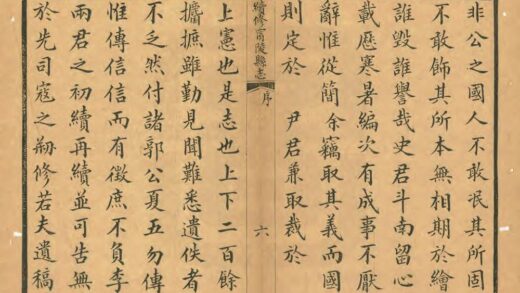 非公之國人不敢泯其所固
不敢飾其所本無相期於繪
誰毀誰譽哉史君斗南留心
載歷寒暑編次有成事不厭
辭惟從簡余竊取其義而國
則定於 尹君兼取裁於
續修甯陵縣志 序 六
上憲也是志也上下二百餘
攟摭雖勤見聞難悉遺佚者
不乏然付諸郭公夏五勿傳
惟傳信信而有徵庶不負李
兩君之初續再續並可告無
於先司寇之剙修若夫遺稿